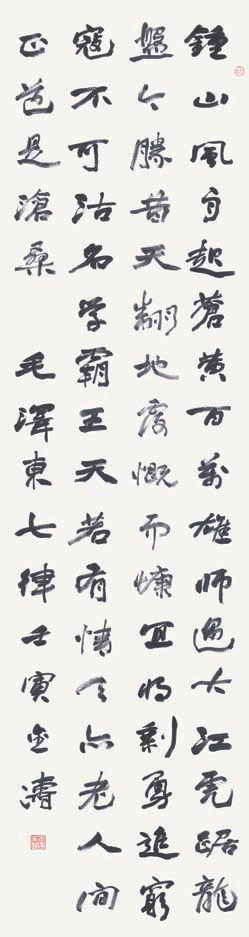 鍾山風雨起蒼黃百萬雄師過大江虎踞龍
盤今勝昔天翻地覆慨而慷宜將剩勇追窮
寇不可沽名学霸王天若有情天亦老人间
正道是滄桑 毛澤東七律壬寅金濤